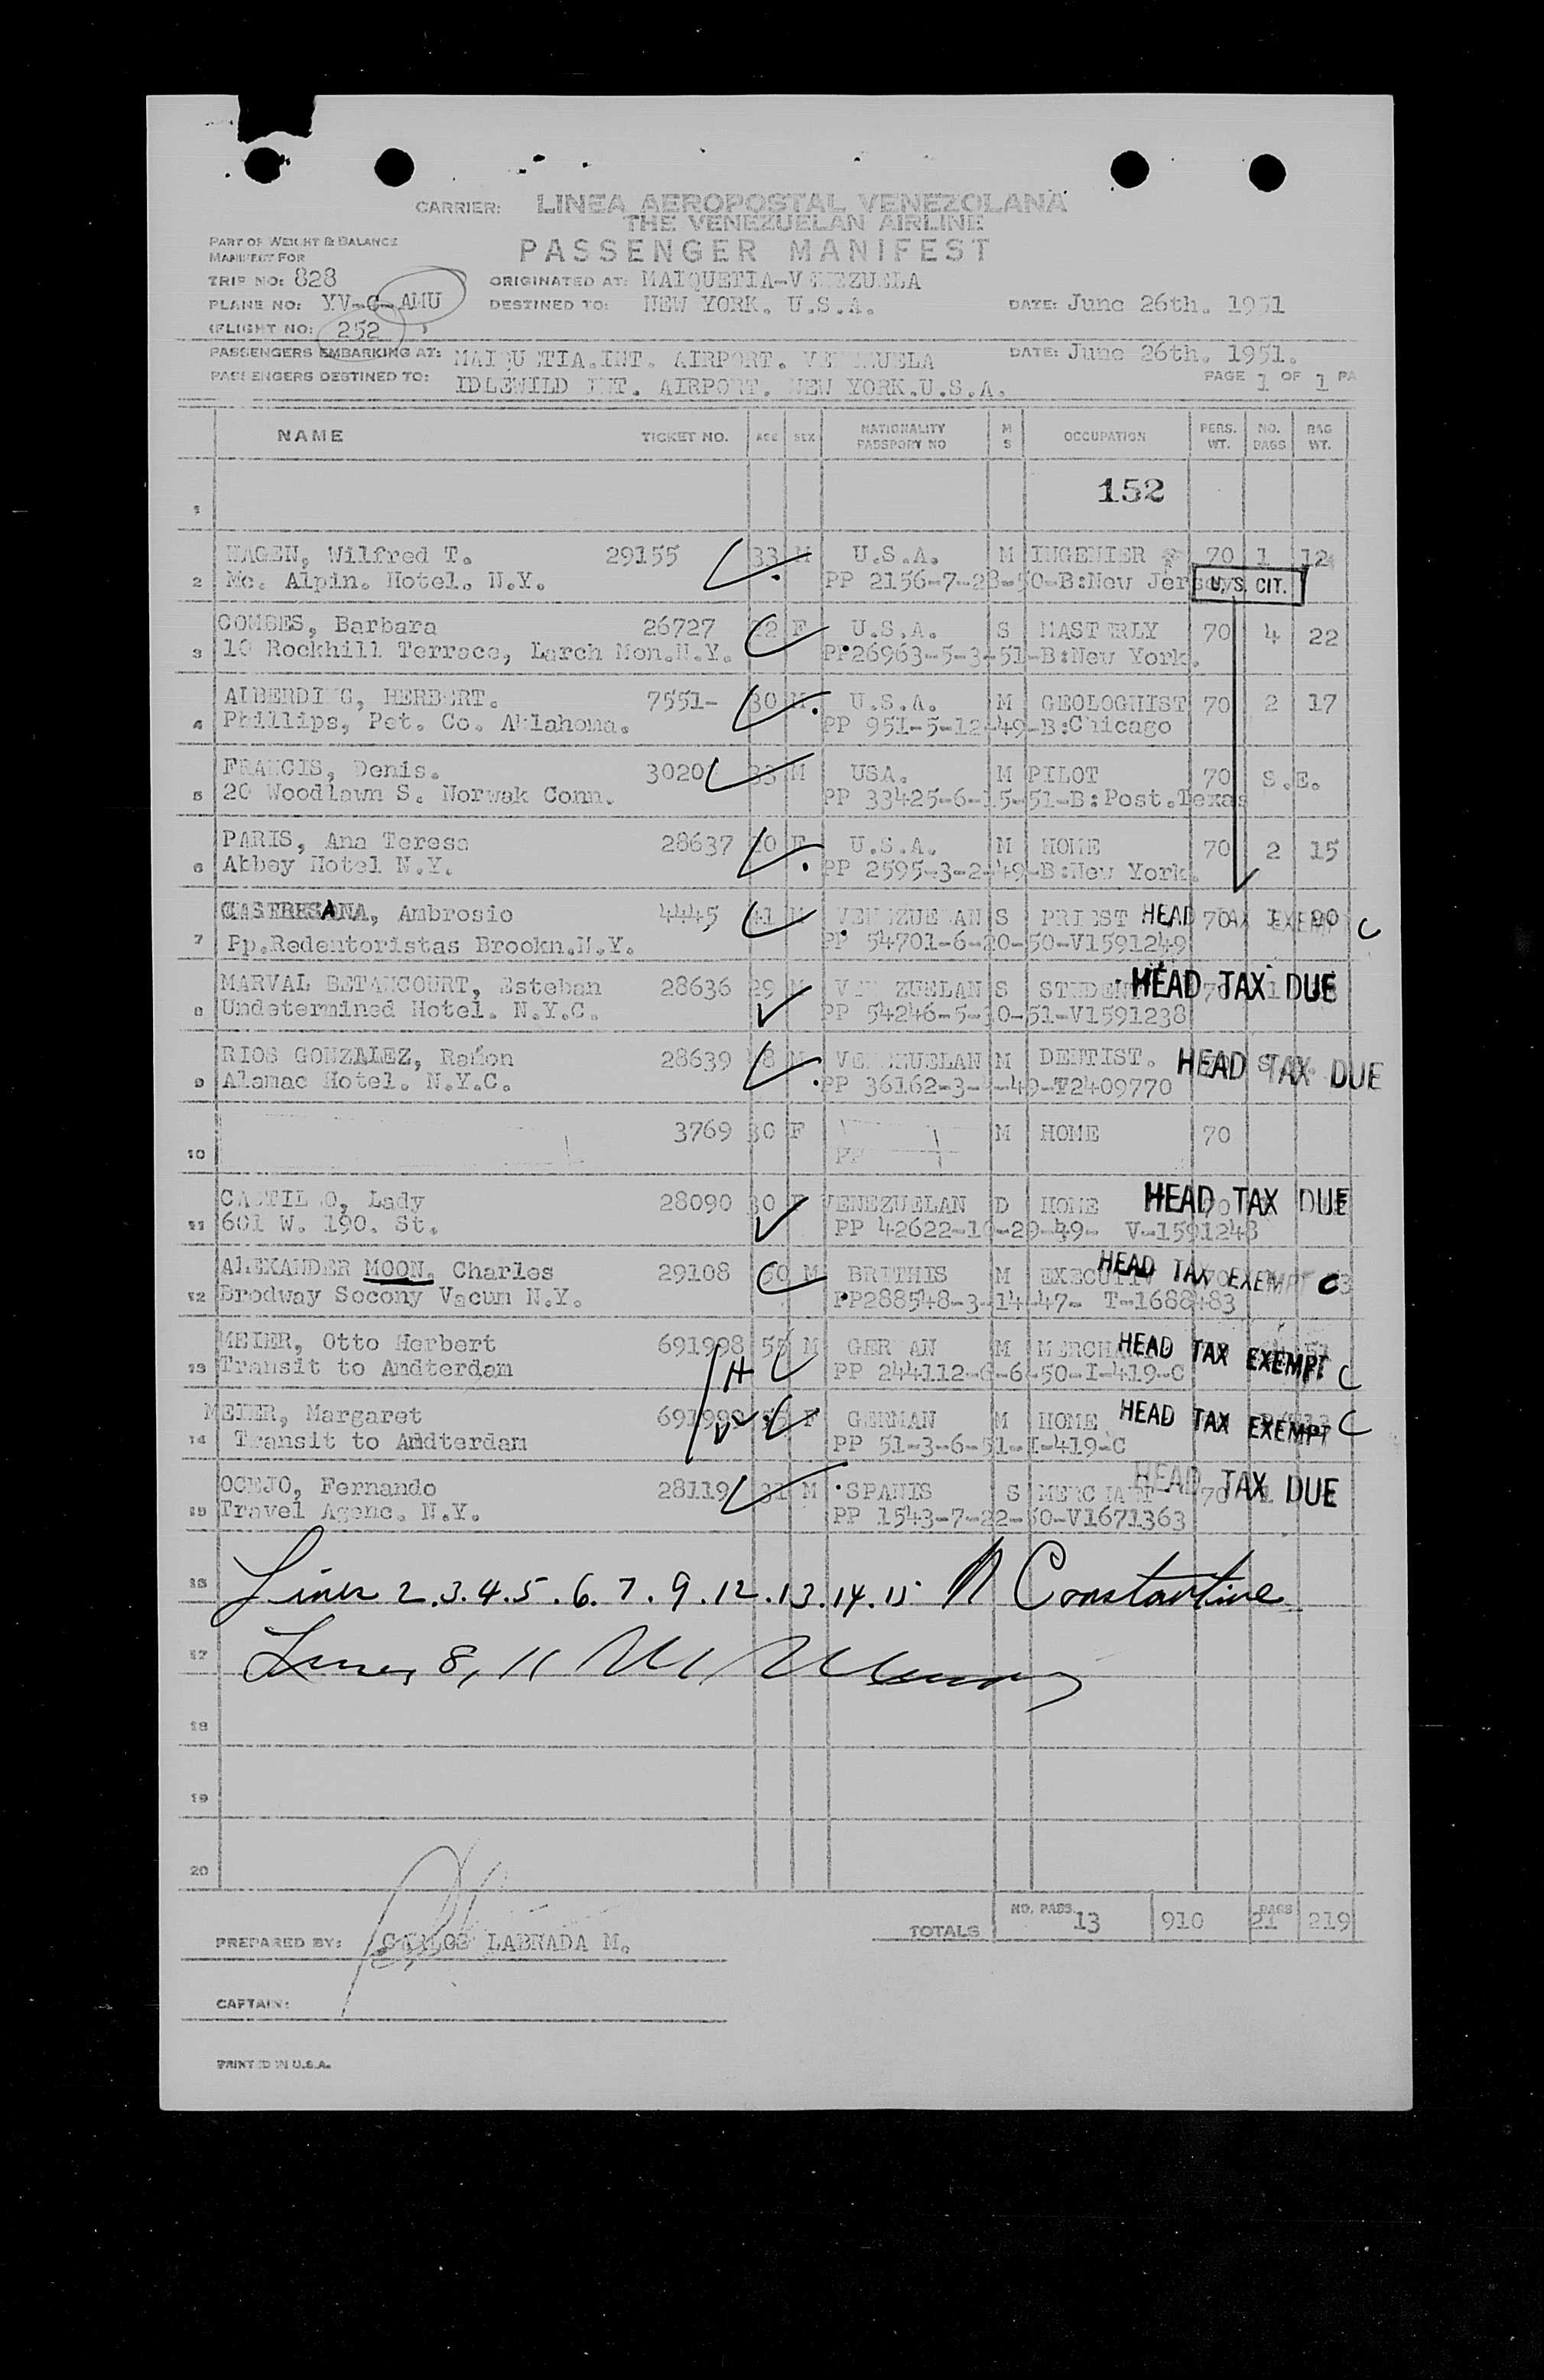 CARRIER: LINEA AEROPOSTAL VENEZOLANA
THE VENEZUELAN AIRLINE
PART OF WEIGHT & BALANCE
MANIFEST FOR
PASSENGER MANIFEST
TRIP NO: 828 ORIGINATED AT: MAIQUETIA-VENEZUELA
PLANE NO: YV-C-AMU DESTINED TO: NEW YORK. U.S.A. DATE: June 26th. 1951
(FLIGHT NO: 252 )
PASSENGERS EMBARKING AT: MAIQUETIA.INT. AIRPORT. VENEZUELA DATE: June 26th. 1951.
PASSENGERS DESTINED TO: IDLEWILD INT. AIRPORT. NEW YORK.U.S.A. PAGE 1 OF 1 PA
NAME TICKET NO. AGE SEX NATIONALITY PASSPORT NO M S OCCUPATION PERS. WT. NO. BAGS BAG WT.
1 152
HAGEN, Wilfred T. 29155 33 M U.S.A. M INGENIER 70 1 12
2 Mc. Alpin. Hotel. N.Y. PP 2156-7-28-50-B:New Jersey U.S. CIT.
COMBES, Barbara 26727 22 F U.S.A. S MASTERLY 70 4 22
3 10 Rockhill Terrace, Larch Mon.N.Y. PP26963-5-3-51-B:New York.
ALBERDING, HERBERT. 7551- 30 M. U.S.A. M GEOLOGHIST 70 2 17
4 Phillips, Pet. Co. Aklahoma. PP 951-5-12-49-B:Chicago
FRANCIS, Denis. 3020 33 M USA. M PILOT 70 S.E.
5 20 Woodlawn S. Norwak Conn. PP 33425-6-15-51-B:Post.Texas
PARIS, Ana Teresa 28637 F U.S.A. M HOME 70 2 15
6 Abbey Hotel N.Y. PP 2595-3-2-49-B:New York.
CASTRESANA, Ambrosio 4445 41 M VENEZUELAN S PRIEST HEAD TAX EXEMPT 70 1 20 C
7 Pp.Redentoristas Brookn.N.Y. PP 54701-6-20-50-V1591249
MARVAL BETANCOURT, Esteban 28636 29 M VENEZUELAN S STUDENT HEAD TAX DUE
8 Undetermined Hotel. N.Y.C. PP 54246-5-30-51-V1591238
RIOS GONZALEZ, Ramon 28639 M VENEZUELAN M DENTIST. HEAD TAX DUE
9 Alamac Hotel. N.Y.C. PP 36162-3-4-49-T2409770
3769 30 F M HOME 70
10 PP
CASTILLO, Lady 28090 30 F VENEZUELAN D HOME HEAD TAX DUE
11 601 W. 190. St. PP 42622-10-29-49- V-1591248
ALEXANDER MOON. Charles 29108 50 M BRITHIS M EXECUTIV HEAD TAX EXEMPT C
12 Brodway Socony Vacum N.Y. PP288548-3-14-47- T-1688483
MEIER, Otto Herbert 691998 55 M GERMAN M MERCHANT HEAD TAX EXEMPT C
13 Transit to Amdterdam H PP 244112-6-6-50-I-419-C
MEIER, Margaret 691999 55 F GERMAN M HOME HEAD TAX EXEMPT C
14 Transit to Amdterdam PP 51-3-6-51-I-419-C
OCEJO, Fernando 28119 31 M SPANIS S MERCHANT HEAD TAX DUE 70 1
15 Travel Agenc. N.Y. PP 1543-7-22-50-V1671363
16 Lines 2.3.4.5.6.7.9.12.13.14.15 N Constantine
17 Lines 8, 11
18
19
20
TOTALS NO. PASS. 13 910 BAGS 21 219
PREPARED BY: CARLOS LABRADA M.
CAPTAIN:
PRINTED IN U.S.A.